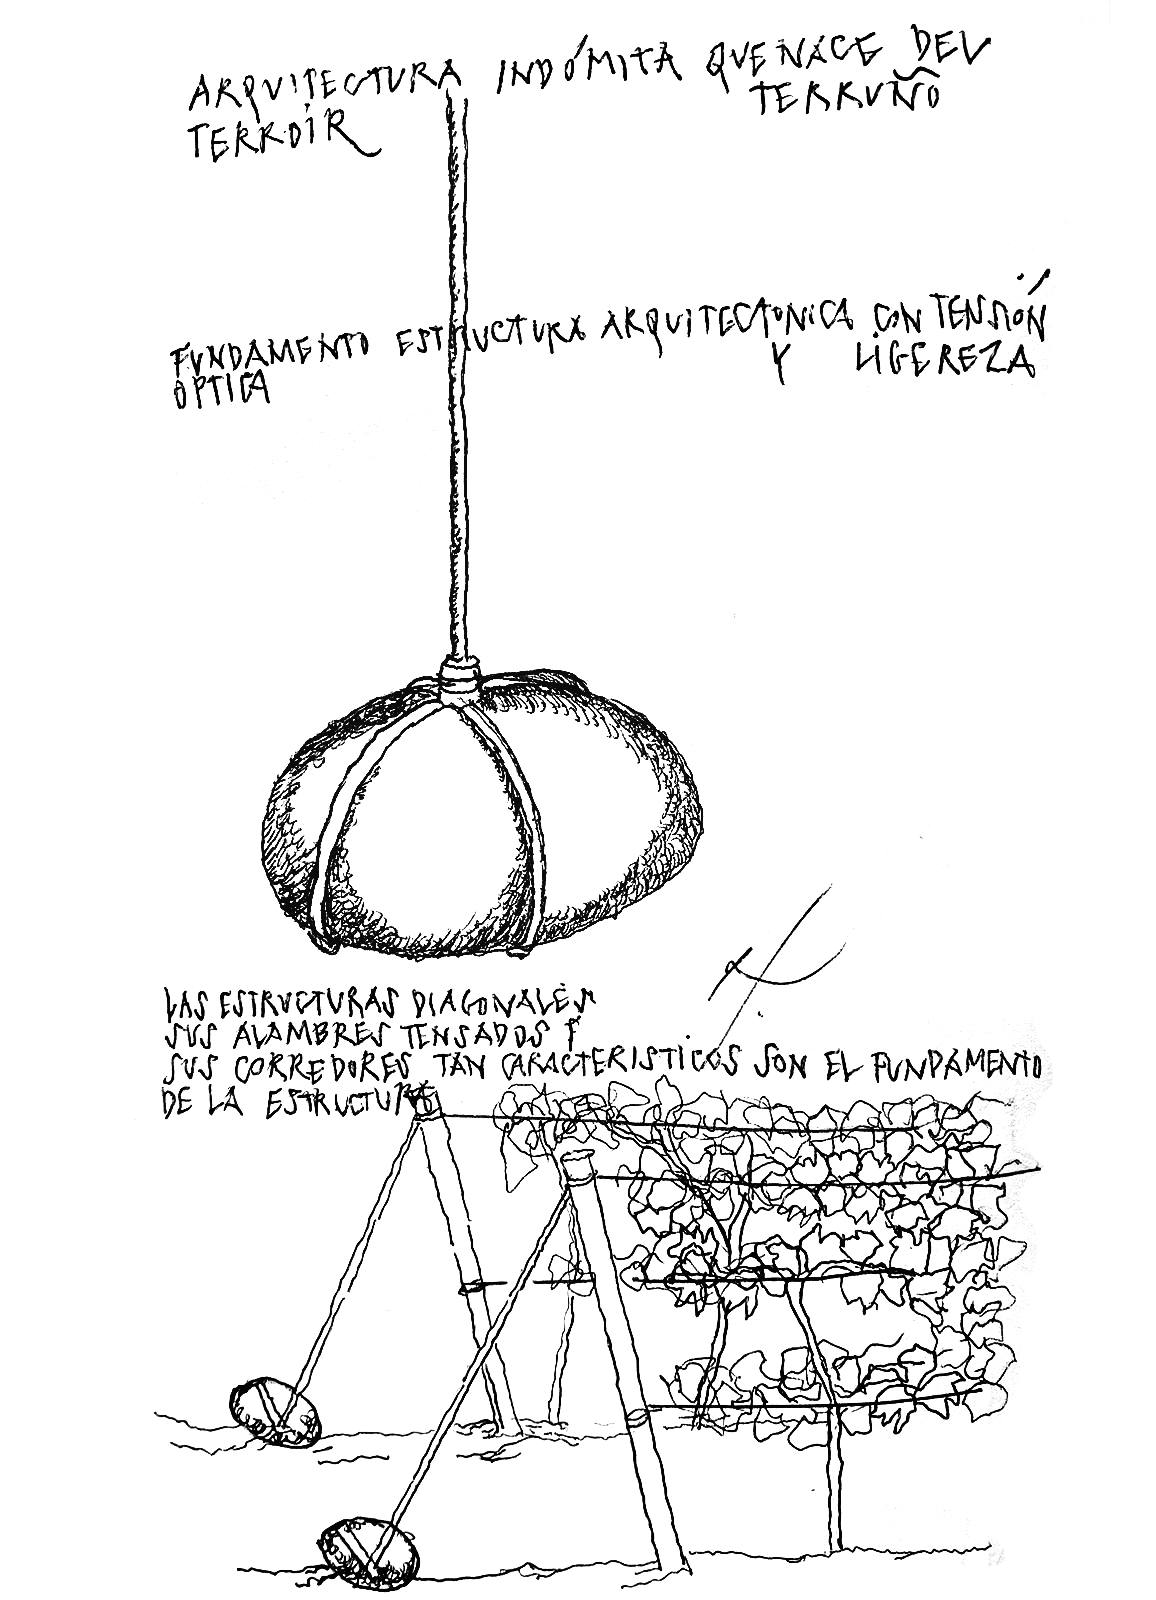 ARQUITECTURA INDÓMITA QUE NACE DEL
TERROIR TERRUÑO
FUNDAMENTO ESTRUCTURA ARQUITECTONICA CON TENSIÓN
OPTICA Y LIGEREZA
LAS ESTRUCTURAS DIAGONALES
SUS ALAMBRES TENSADOS Y
SUS CORREDORES TAN CARACTERISTICOS SON EL FUNDAMENTO
DE LA ESTRUCTURA